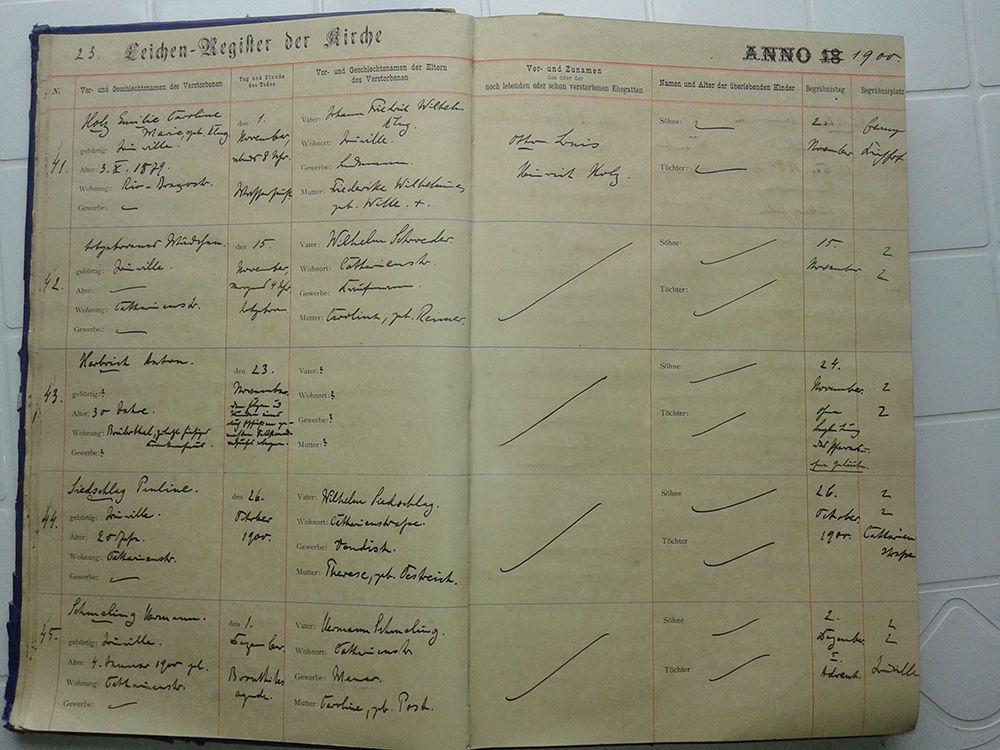 23. Leichen-Register der Kirche
ANNO 18 1900.
N.
Vor- und Geschlechtsnamen des Verstorbenen
Tag und Stunde
des Todes
Vor- und Geschlechtsnamen der Eltern
des Verstorbenen
Vor- und Zunamen
des oder der
noch lebenden oder schon verstorbenen Ehegatten
Namen und Alter der überlebenden Kinder
Begräbnistag
Begräbnisplatz
41.
Holz Emilie Caroline
Marie, geb. Krug
gebürtig: Joinville.
Alter: 3. X. 1879.
Wohnung:
Gewerbe:
den 1.
November,
Vater: Johann Friedrich Wilhelm
Krug.
Wohnort: Joinville.
Gewerbe: Landmann.
Mutter: Friederike Wilhelmine
geb. Witte. +.
Otto Louis
Heinrich Holz.
Söhne:
Töchter:
2.
November
42.
totgeborenes Mädchen.
gebürtig: Joinville.
Alter:
Wohnung: Catharienstr.
Gewerbe:
den 15.
November,
morgens 4 Uhr
totgeboren
Vater: Wilhelm Schroeder.
Wohnort: Catharienstr.
Gewerbe: Kaufmann.
Mutter: Caroline, geb. Renner.
Söhne:
Töchter:
15.
November
43.
Herbrich Anton.
gebürtig: ?
Alter: 30 Jahre.
Wohnung:
Gewerbe: ?
den 23.
November.
Vater: ?
Wohnort: ?
Gewerbe: ?
Mutter: ?
Söhne:
Töchter:
24.
November.
ohne
Begleitung
des Pfarrers
44.
Siedschlag Pauline.
gebürtig: Joinville.
Alter: 20 Jahre.
Wohnung: Catharienstr.
Gewerbe:
den 26.
October
1900.
Vater: Wilhelm Siedschlag.
Wohnort: Catharienstraße.
Gewerbe:
Mutter: Therese, geb. Oestreich.
Söhne
Töchter
26.
October.
1900.
Catharien
straße
45.
Schmeling Hermann.
gebürtig: Joinville.
Alter: 4. Januar 1900 geb.
Wohnung: Catharienstr.
Gewerbe:
den 1.
Dezember.
Vater: Hermann Schmeling.
Wohnort: Catharienstr
Gewerbe: Maurer.
Mutter: Caroline, geb. Post.
Söhne
Töchter
2.
Dezember
I.
Advent.
Joinville